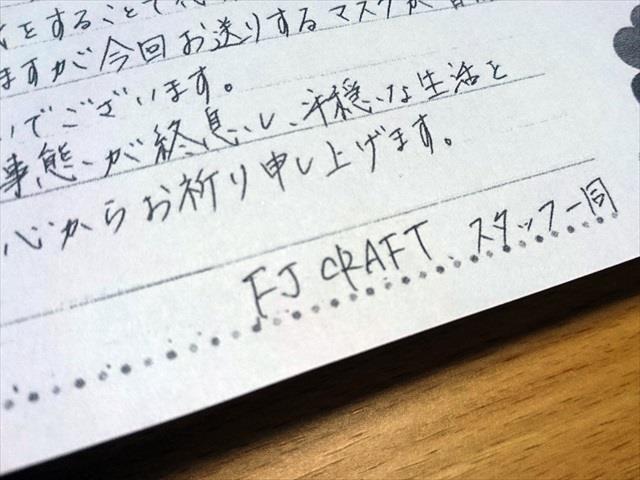 をすることで
ますが今回お送りするマスクが
いでございます。
事態が終息し、平穏な生活と
心からお祈り申し上げます。
FJ CRAFT スタッフ一同